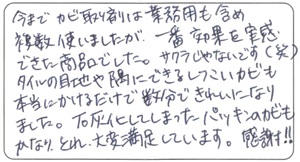 今までカビ取り剤は業務用も含め
複数使いましたが、一番効果を実感
できた商品でした。サクラじゃないです(笑)
タイルの目地や隅にできるしつこいカビも
本当にかけるだけで数分できれいになり
ました。石灰化してしまったパッキンのカビも
かなりとれ、大変満足しています。感謝!!